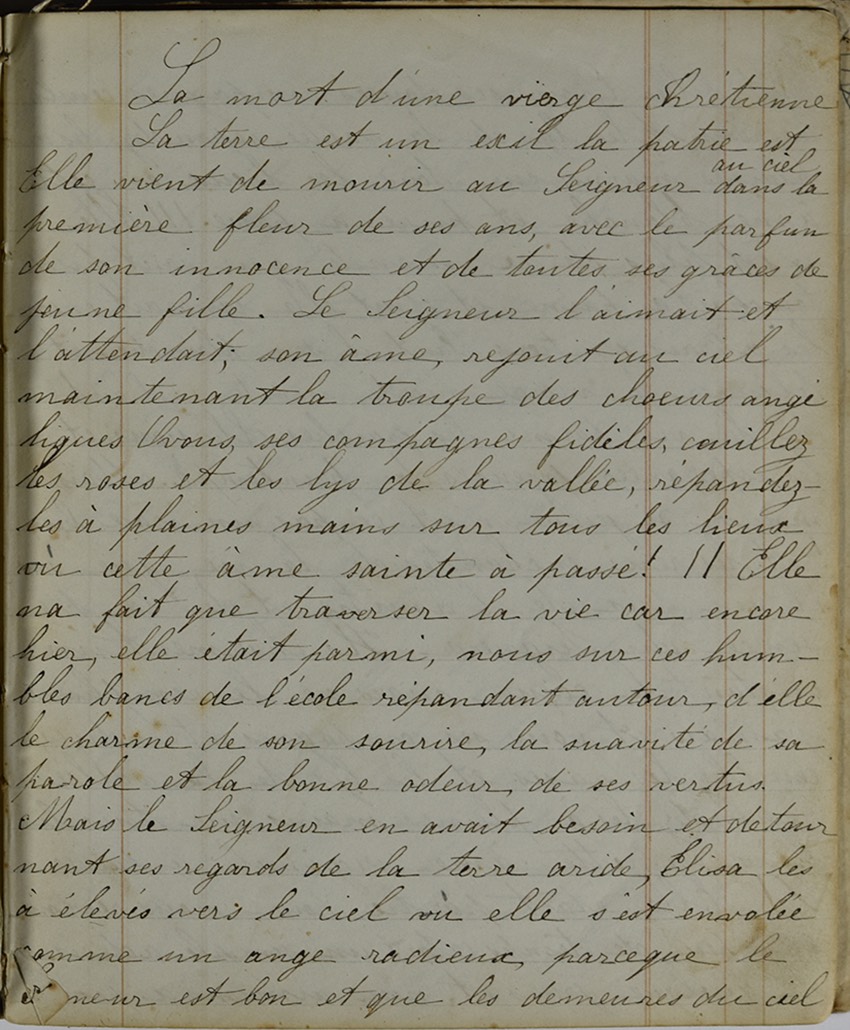 La mort d'une vierge chrétienne
La terre est un exil la patrie est
au ciel
Elle vient de mourir au Seigneur dans la
première fleur de ses ans, avec le parfun
de son innocence et de toutes ses grâces de
jeune fille. Le Seigneur l'aimait et
l'attendait; son âme, rejouit au ciel
maintenant la troupe des choeurs angé
liques O vous, ses compagnes fidèles, cuillez
les roses et les lys de la vallée, répandez-
les à plaines mains sur tous les lieux
où cette âme sainte à passé! !! Elle
na fait que traverser la vie car encore
hier, elle était parmi, nous sur ces hum-
bles bancs de l'école répandant autour, d'élle
le charme de son sourire, la suavité de sa
parole et la bonne odeur, de ses vertus.
Mais le Seigneur en avait besoin et detour
nant ses regards de la terre aride, Élisa les
à élevés vers le ciel où elle s'est envolée
comme un ange radieux, parceque le
neur est bon et que les demeures du ciel